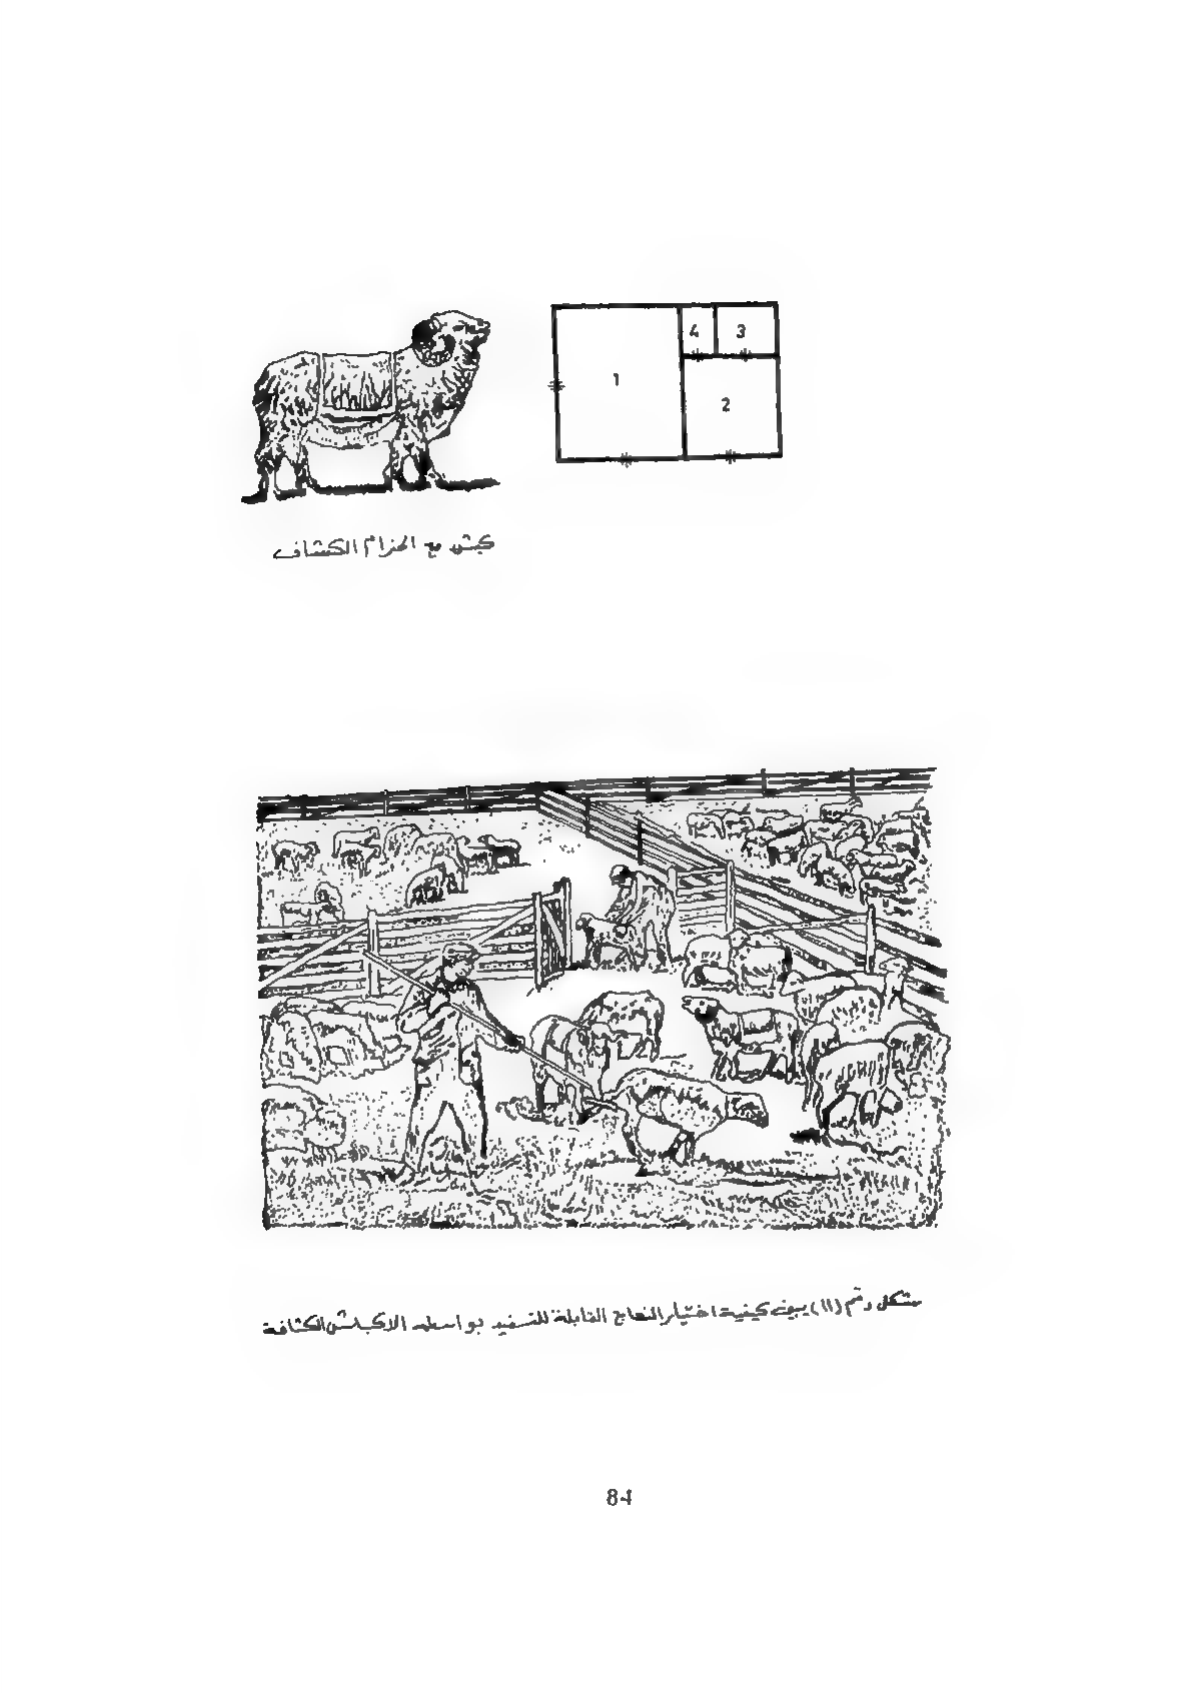 4 3
1
2
كبش مع الحزام الكشاف
شكل رقم (11) يبين كيفية اختيار النعاج القابلة للتسفيد بواسطه الاكباش الكشافة
84